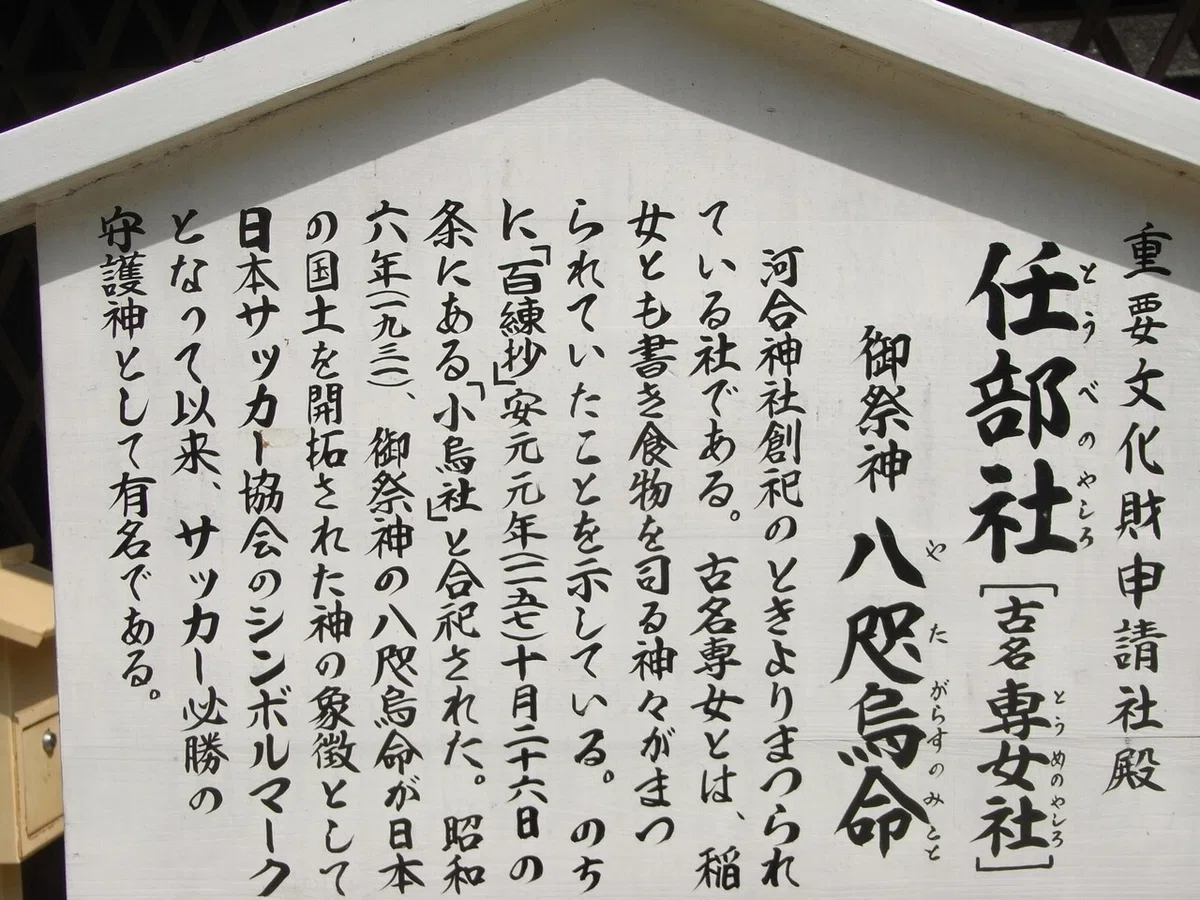 重要文化財申請社殿
任部社［古名専女社］
とうべのやしろ とうめのやしろ
御祭神 八咫烏命
やたがらすのみこと
河合神社創祀のときよりまつられ
ている社である。古名専女とは、稲
女とも書き食物を司る神々がまつ
られていたことを示している。のち
に「百練抄」安元元年（一一五七）十月二十六日の
条にある「小烏社」と合祀された。昭和
六年（一九三一）、御祭神の八咫烏命が日本
の国土を開拓された神の象徴として
日本サッカー協会のシンボルマーク
となって以来、サッカー必勝の
守護神として有名である。